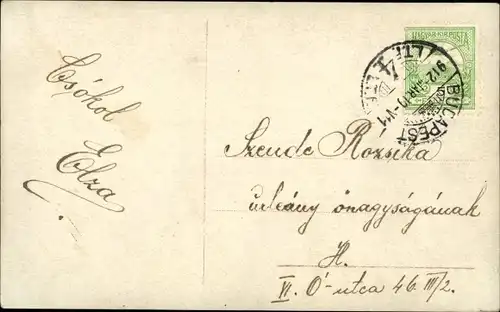 Csókol
Elza
MAGYAR KIR. POSTA
BUDAPEST
912 MÁR
Szende Rozsika
urleány önagyságának
H.
VI. Ó-utca 46. III/2.